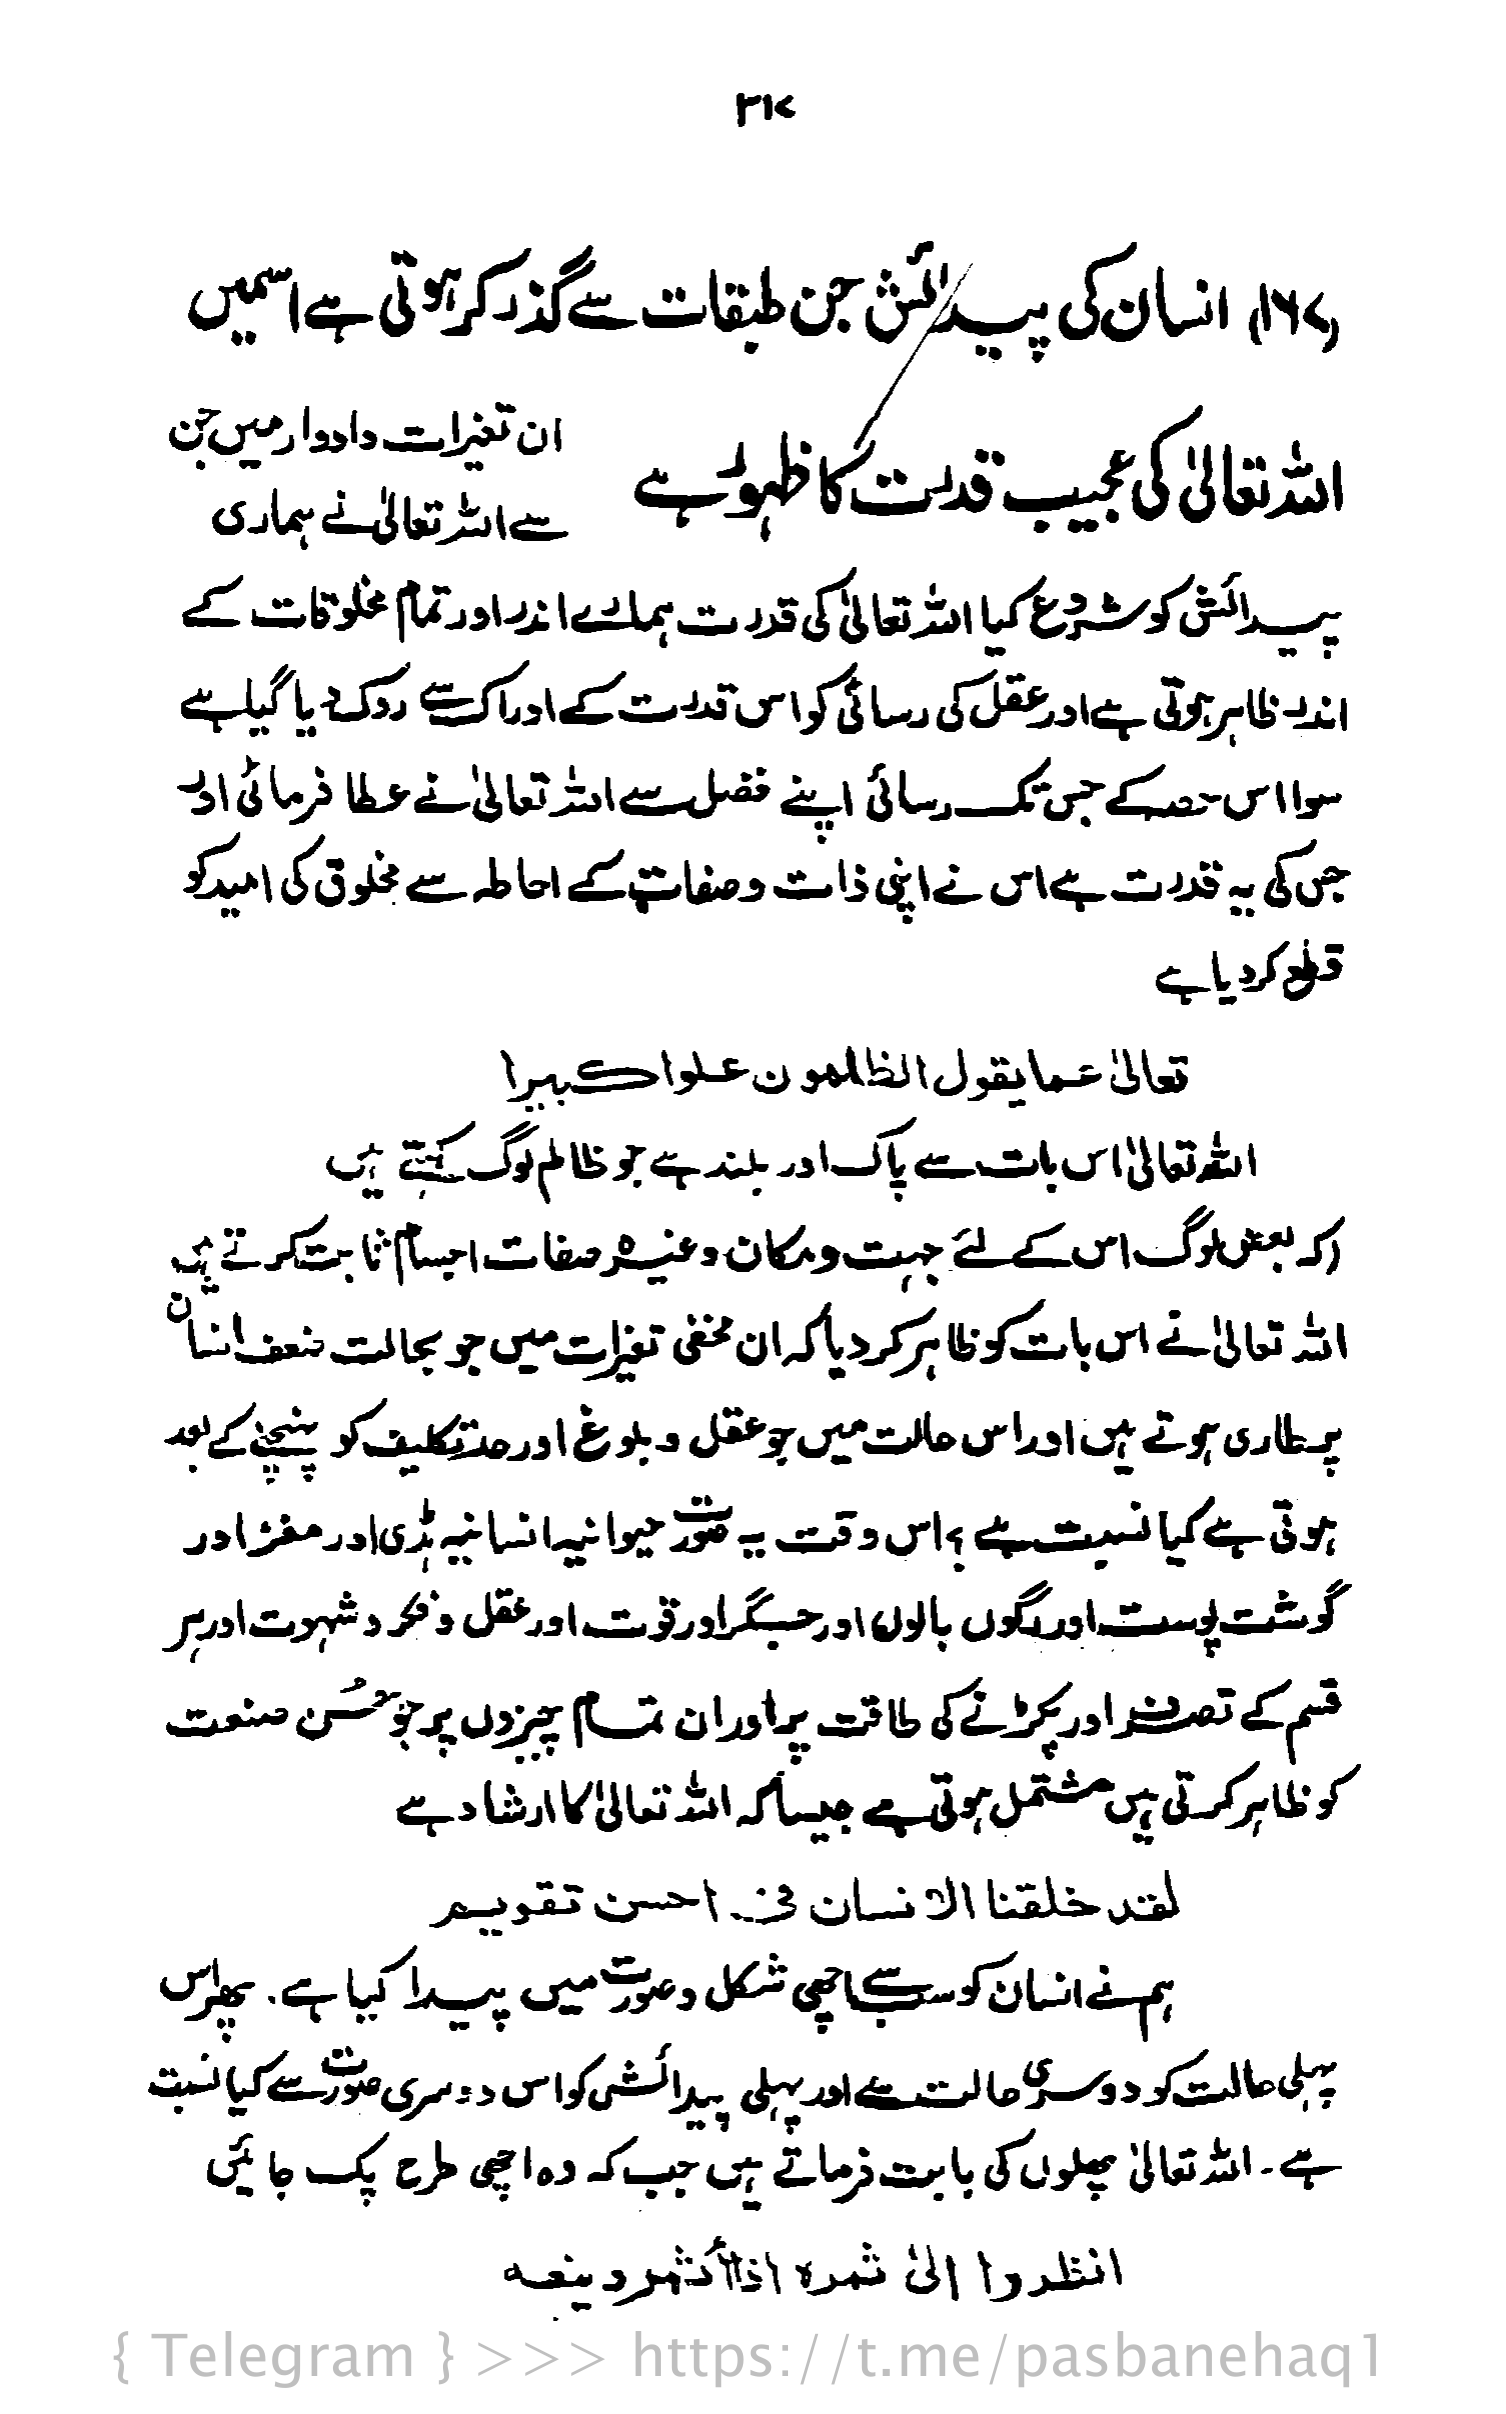 ۳۱۷
(۱۶۷) انسان کی پیدائش جن طبقات سے گذر کر ہوتی ہے اسمیں
اللہ تعالیٰ کی عجیب قدرت کا ظہور ہے
ان تغیرات وادوار میں جن
سے اللہ تعالیٰ نے ہماری
پیدائش کو شروع کیا اللہ تعالیٰ کی قدرت ہمارے اندر اور تمام مخلوقات کے
اندر ظاہر ہوتی ہے اور عقل کی رسائی کو اس قدرت کے ادراک سے روک دیا گیا ہے
سوا اس حصہ کے جس تک رسائی اپنے فضل سے اللہ تعالیٰ نے عطا فرمائی اور
جس کی یہ قدرت ہے اس نے اپنی ذات وصفات کے احاطہ سے مخلوق کی امید کو
قطع کر دیا ہے
تعالیٰ عما یقول الظلمون علوا کبیرا
اللہ تعالیٰ اس بات سے پاک اور بلند ہے جو ظالم لوگ کہتے ہیں
(کہ بعض لوگ اس کے لئے جہت ومکان وغیرہ صفات اجسام ثابت کرتے ہیں
اللہ تعالیٰ نے اس بات کو ظاہر کر دیا کہ ان مخفی تغیرات میں جو بحالت ضعف انسان
پر طاری ہوتے ہیں اور اس حالت میں جو عقل و بلوغ اور حد تکلیف کو پہنچنے کے بعد
ہوتی ہے کیا نسبت ہے ؟ اس وقت یہ صورت حیوانیہ انسانیہ ہڈی اور مغز اور
گوشت پوست اور رگوں بالوں اور جگر اور قوت اور عقل و فکر و شہوت اور ہر
قسم کے تصرف اور پکڑنے کی طاقت پر اور ان تمام چیزوں پر جو حُسن صنعت
کو ظاہر کرتی ہیں مشتمل ہوتی ہے جیسا کہ اللہ تعالیٰ کا ارشاد ہے
لقد خلقنا الانسان فی احسن تقویم
ہم نے انسان کو سب سے اچھی شکل وصورت میں پیدا کیا ہے۔ پھر اس
پہلی حالت کو دوسری حالت سے اور پہلی پیدائش کو اس دوسری صورت سے کیا نسبت
ہے۔ اللہ تعالیٰ پھلوں کی بابت فرماتے ہیں جب کہ وہ اچھی طرح پک جائیں
انظروا الیٰ ثمرہ اذا أثمر وینعہ
{ Telegram } >>> https://t.me/pasbanehaq1